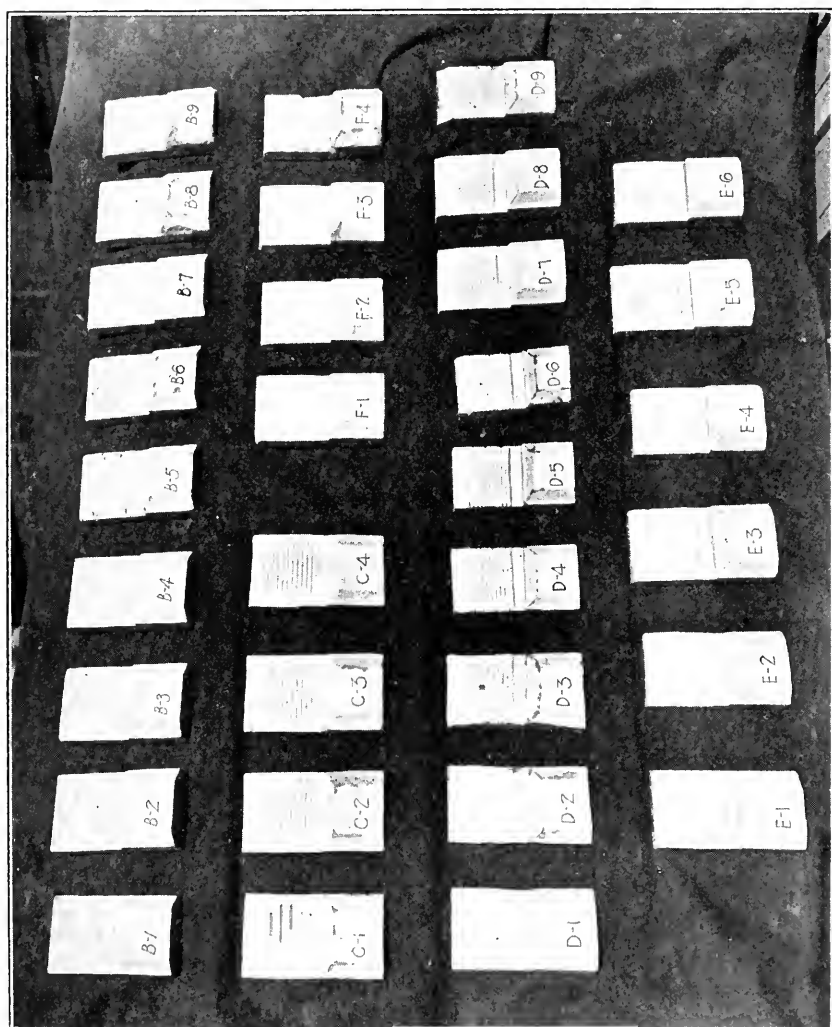 B-1 B-2 B-3 B-4 B-5 B6 B-7 B-8 B-9
C-1 C-2 C-3 C-4 F-1 F-2 F-3 F-4
D-1 D-2 D-3 D-4 D-5 D-6 D-7 D-8 D-9
E-1 E-2 E-3 E-4 E-5 E-6